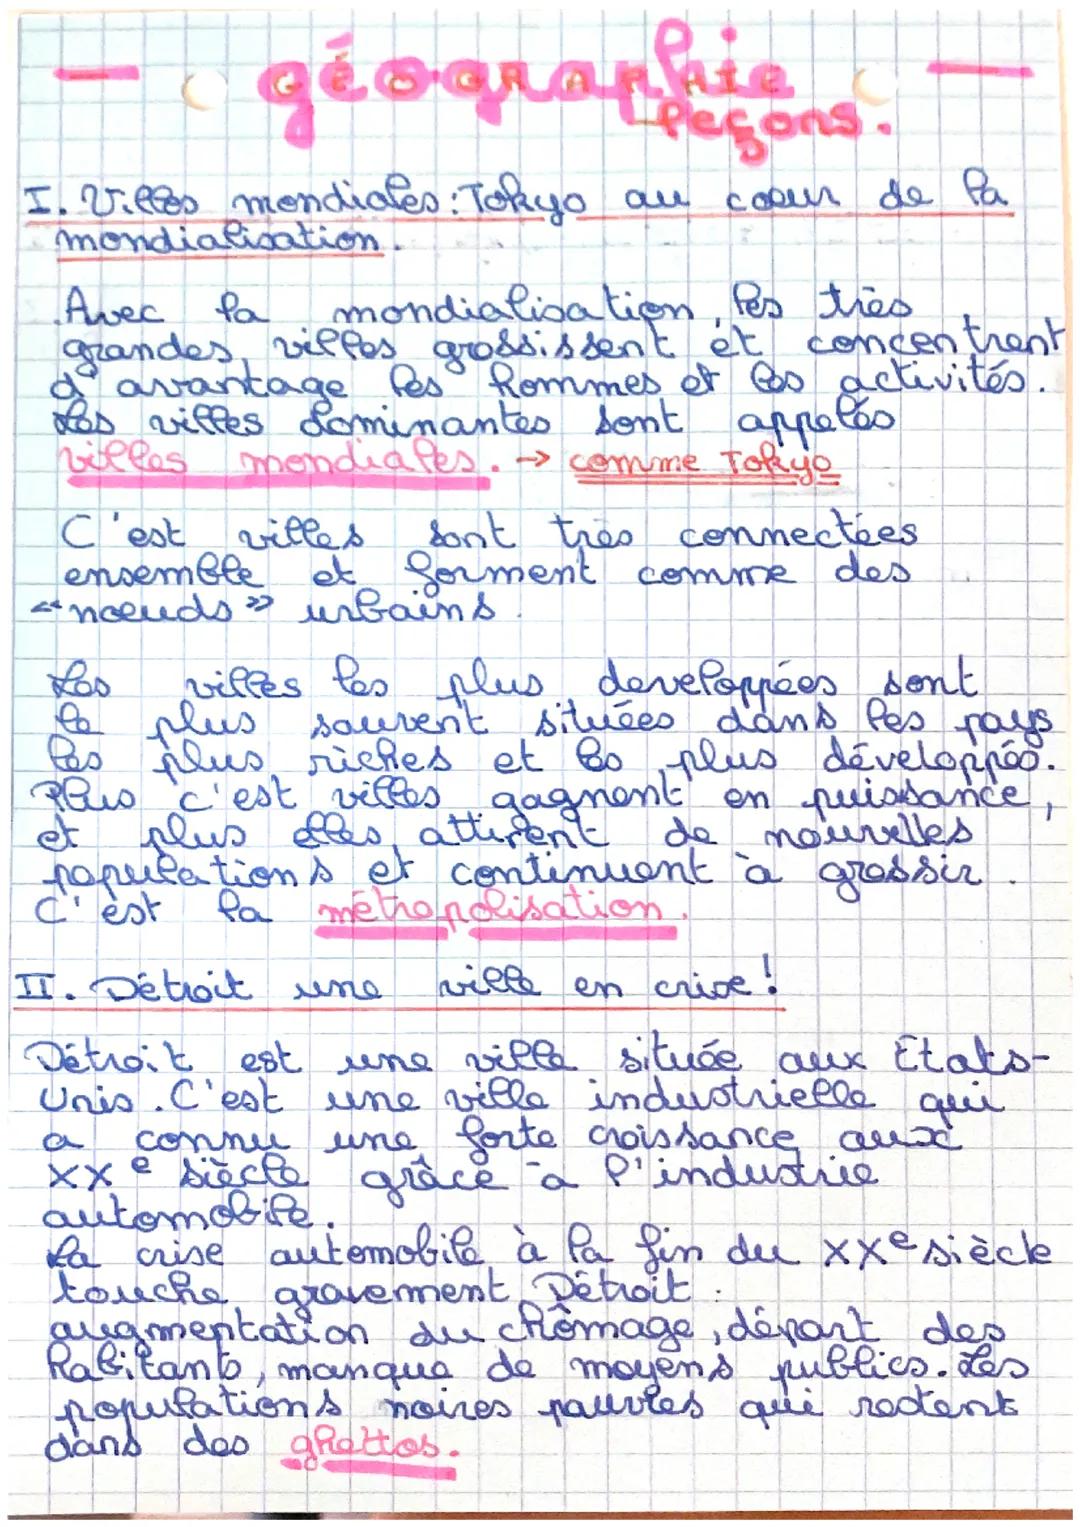 géographie
GÉOGRAPHIE
leçons.
I. Villes mondiales : Tokyo au coeur de la
mondialisation.
Avec la mondialisation, les très
grandes villes grossissent et concentrent
d'avantage les hommes et les activités.
Les villes dominantes sont appelés
villes mondiales. → comme Tokyo
C'est villes sont très connectées
ensemble et forment comme des
« noeuds » urbains.
Les villes les plus developpées sont
le plus souvent situées dans les pays
les plus riches et les plus développés.
Plus c'est villes gagnent en puissance,
et plus elles attirent de nouvelles
populations et continuent à grossir.
C'est la métropolisation.
II. Détroit une ville en crise !
Détroit est une ville située aux États-
Unis. C'est une ville industrielle qui
a connu une forte croissance aux
XXe siècle grâce à l'industrie
automobile.
La crise automobile à la fin du XXe siècle
touche gravement Détroit :
augmentation du chômage, départ des
habitants, manque de moyens publics. Les
populations noires pauvres qui restent
dans des ghettos.